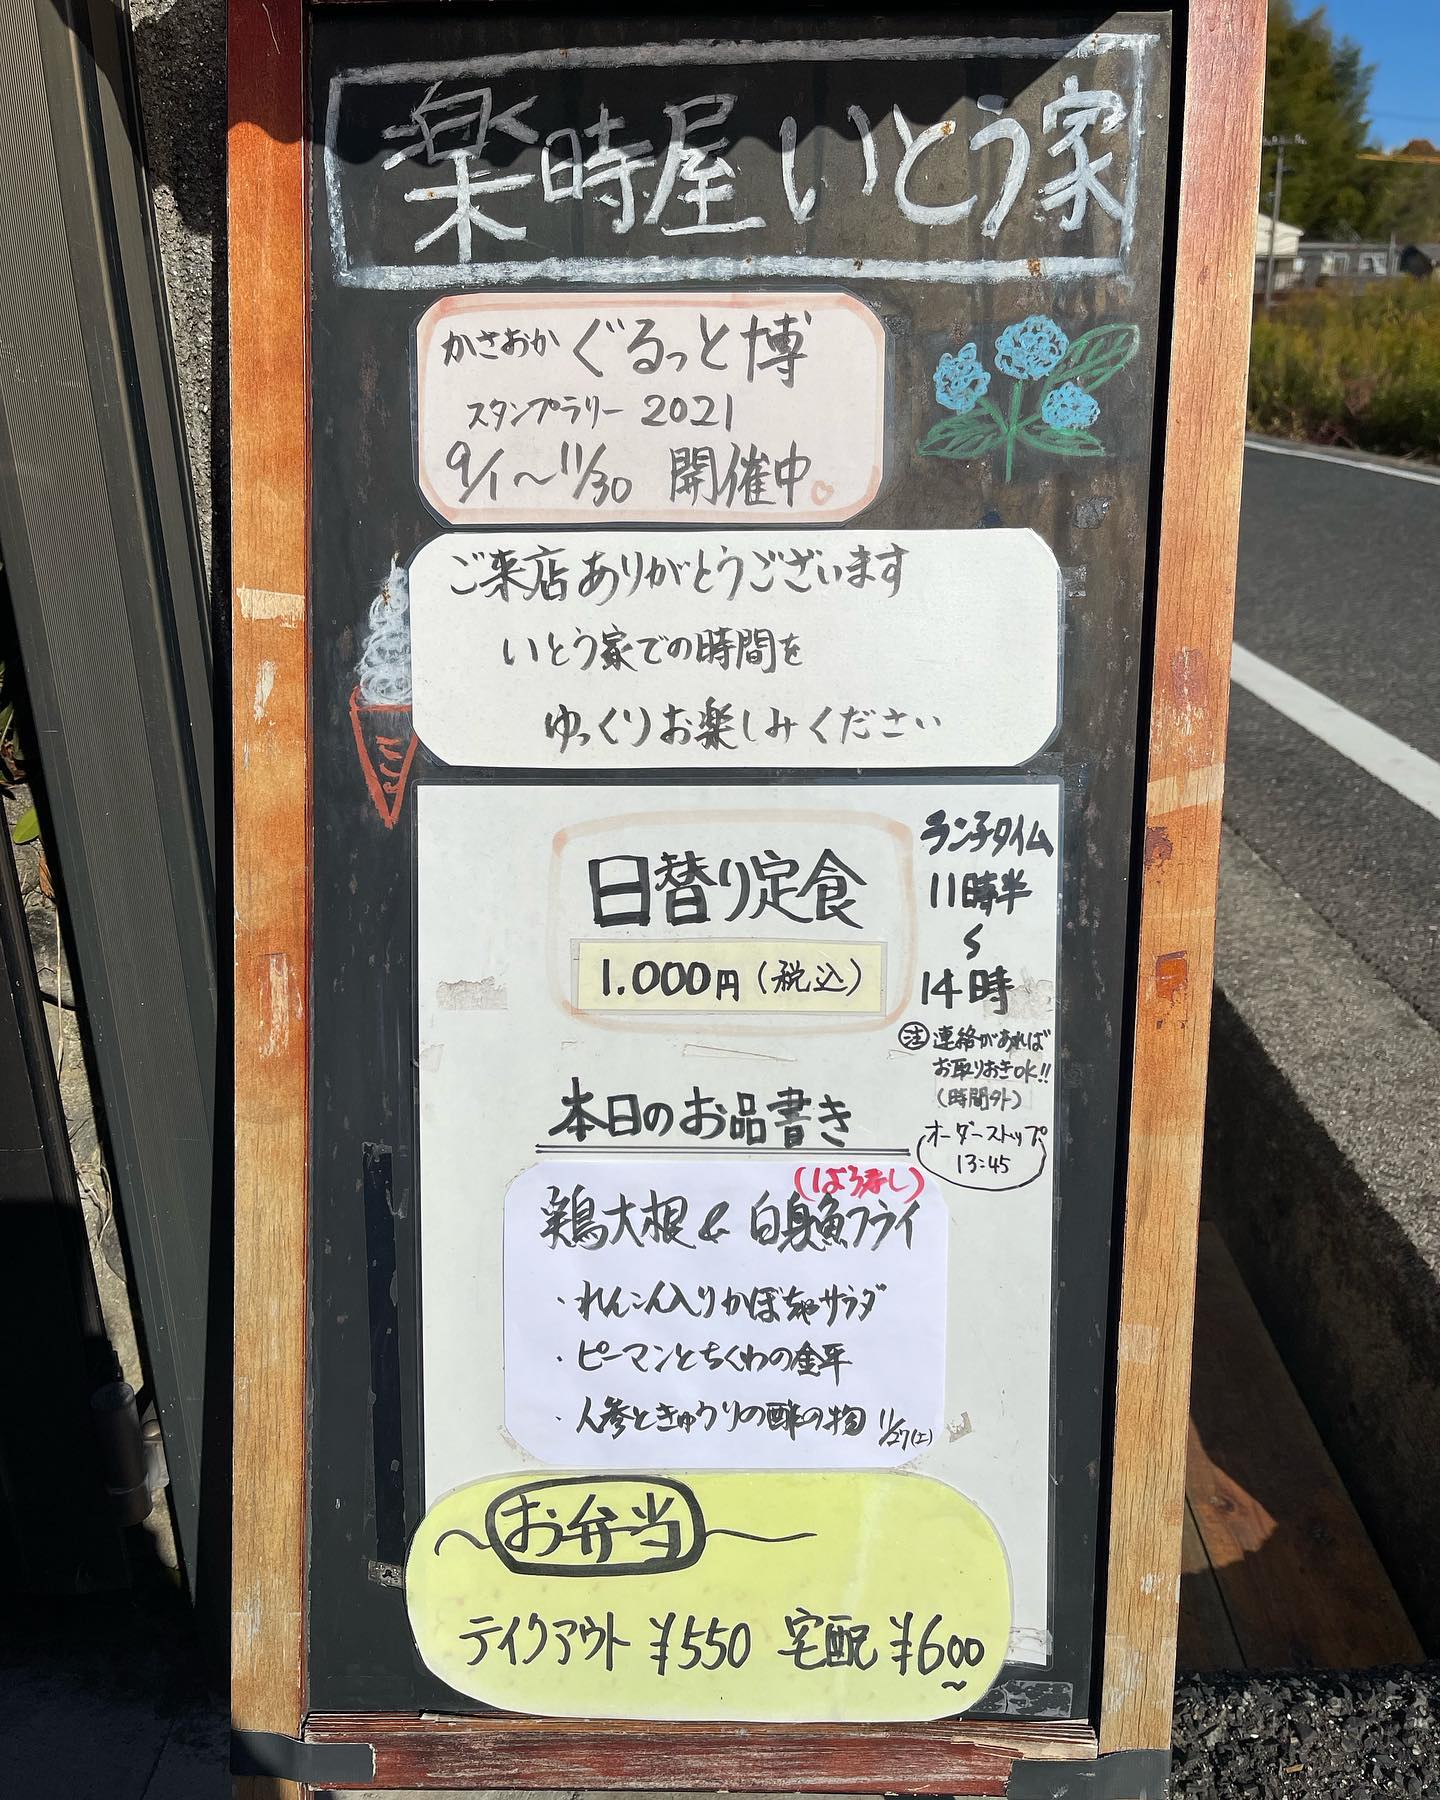 楽時屋 いとう家
かさおか ぐるっと博
スタンプラリー 2021
9/1～11/30 開催中
ご来店ありがとうございます
いとう家での時間を
ゆっくりお楽しみください
日替り定食
1.000円（税込）
ランチタイム
11時半
〜
14時
注 連絡があれば
お取りおきOK!!
（時間外）
オーダーストップ
13:45
本日のお品書き
(ばら寿し)
鶏大根 & 白身魚フライ
・れんこん入りかぼちゃサラダ
・ピーマンとちくわの金平
・人参ときゅうりの酢の物 11/27(土)
～お弁当～
テイクアウト ¥550 宅配 ¥600～